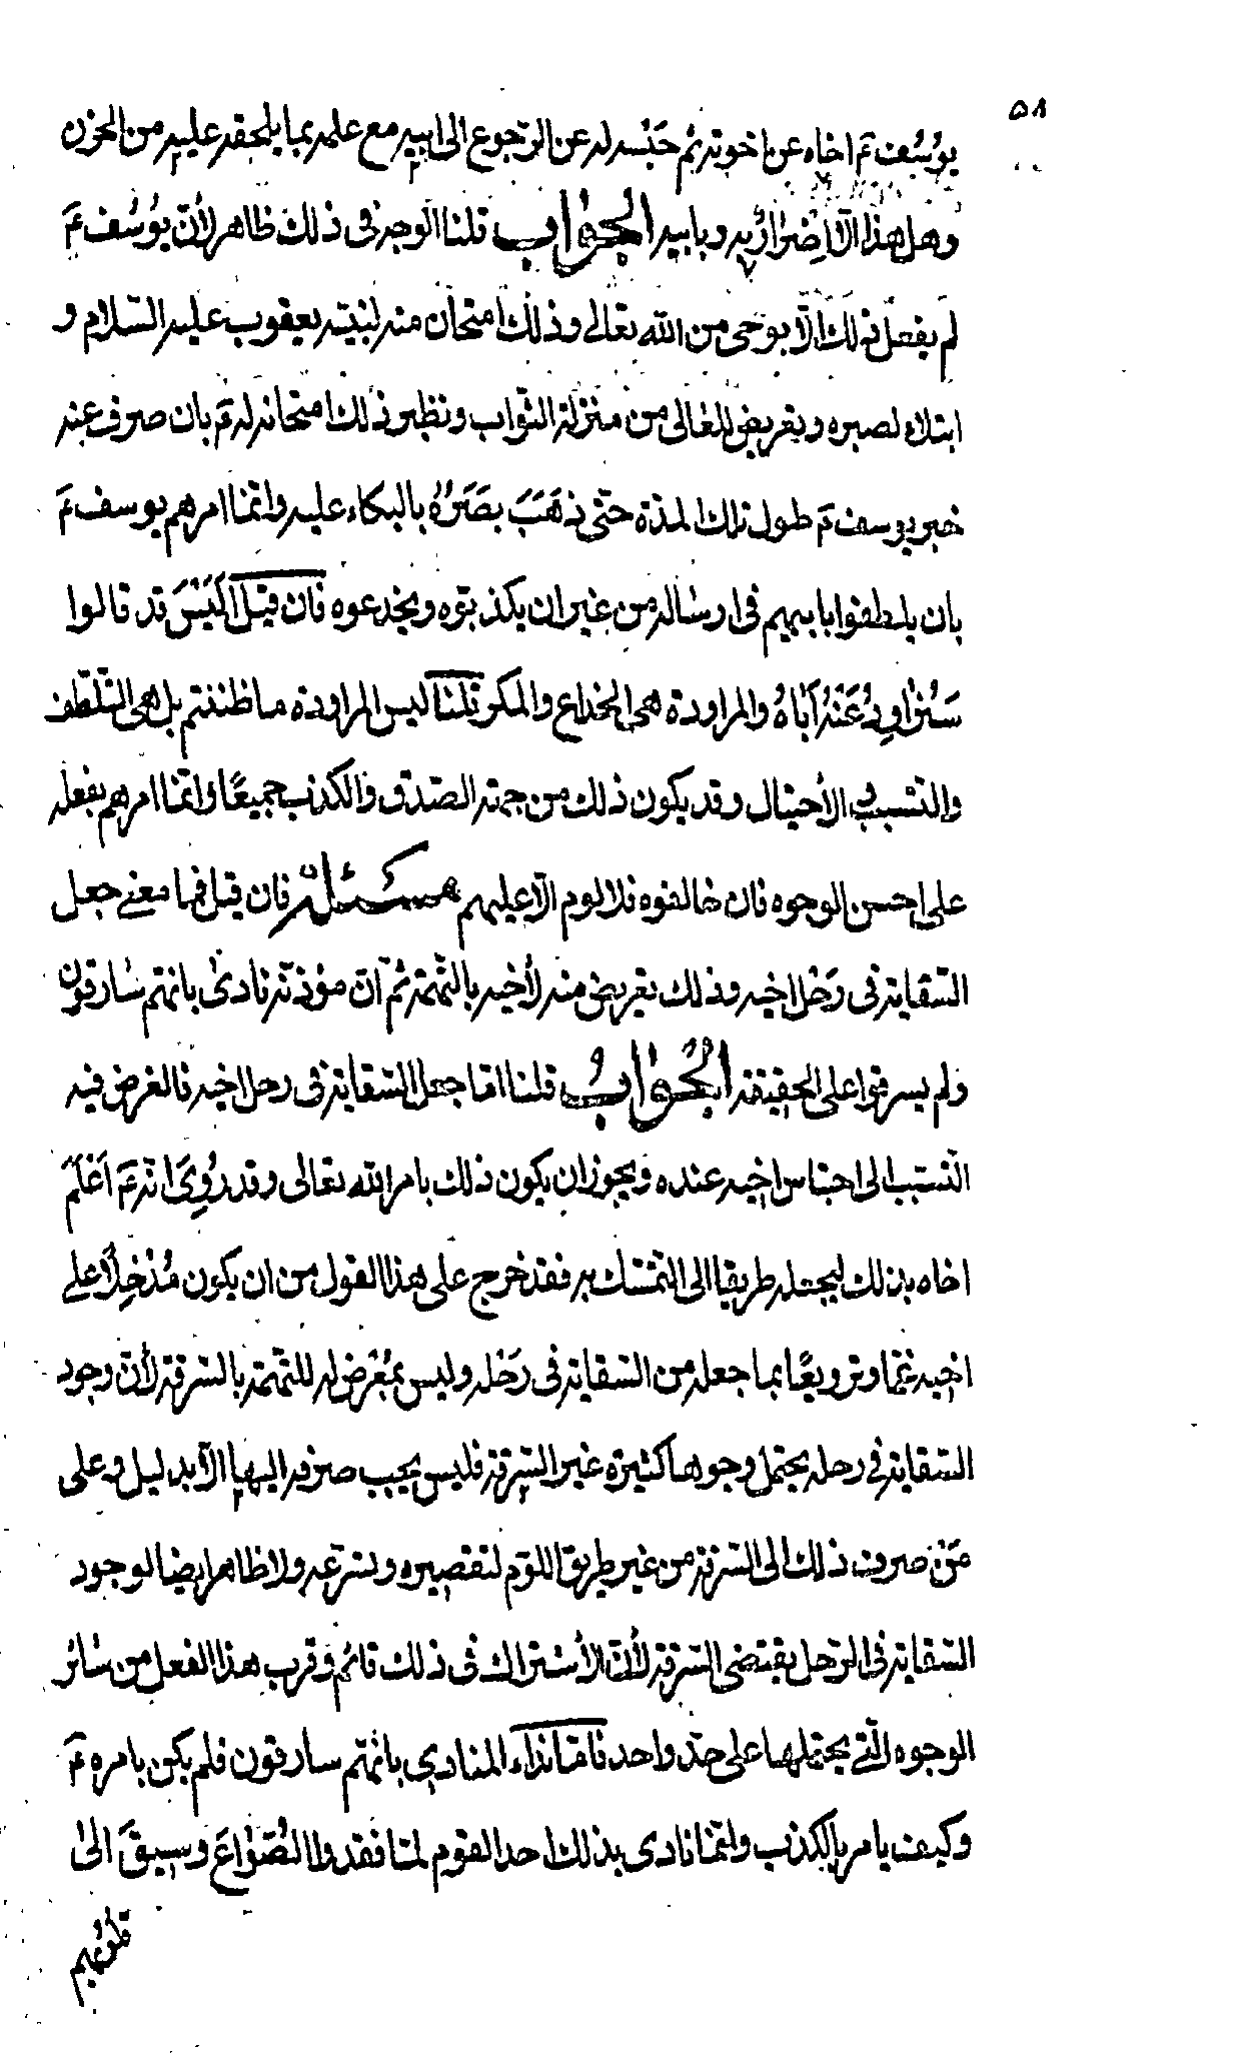 ٥٨
يوُسُف عَ اخاه عن اخوته ثم حَبْسه له عن الرّجوع الى ابيه مع علمه بما يلحقه عليه من الحزن
وهل هذا الّا اِضرٰارٌ به و بابيه الجَوٰاب قلنا الوجه فى ذلك ظاهر لأنّ يوُسُف عَ
لم يفعل ذلك الّا بوحى من الله تعالى وذلك امتحان منه لنبيّه يعقوب عليه السّلام و
ابتلاء لصبره وتعريض للعالى من منزلة الثّواب ونظير ذلك امتحانه له عَ بان صرف عنه
خبر يوسف عَ طول تلك المدّة حتّى ذَهَبَ بَصَرُهُ بالبكاء عليه وانّما امرهم يوسف عَ
بان يلطفوا بابيهم فى ارساله من غير ان يكذبوه ويخدعوه فان قيل اَلَيْسَ قد قالوا
سَنُرٰاوِدُ عَنْهُ اَبٰاهُ والمراودة هى الخداع والمكر قلنا ليس المراودة ما ظننتم بل هى التّلطّف
والتّسبب و الأحتيال وقد يكون ذلك من جهة الصّدق والكذب جميعًا وانّما امرهم بفعله
على احسن الوجوه فان خالفوه فلا لوم الّا عليهم مسئلة فان قيل فما معنى جعل
السّقاية فى رَحْل اخيه وذلك تعريض منه لأخيه بالتّهمة ثمّ انّ مؤذّنه نادىٰ بانّهم سٰارقون
ولم يسرقوا على الحقيقة الجَوٰابُ قلنا امّا جعل السّقاية فى رحل اخيه فالغرض فيه
التّسبّب الى احتباس اخيه عنده ويجوز ان يكون ذلك بامر الله تعالى وقد رُوِىَ انّه عَ اَعْلَمَ
اخاه بذلك ليجعله طريقا الى التمسّك به فقد خرج على هذا القول من ان يكون مُدْخِلًا على
اخيه غمّا وترويعًا بما جعله من السّقاية فى رَحْله وليس بمُعْرض له للتّهمة بالسّرقة لأنّ وجود
السّقاية فى رحله يحتمل وجوها كثيرة غير السّرقة فليس يجب صرفه اليها الّا بدليل و على
مَنْ صرف ذلك الى السّرقة من غير طريق اللّوم لتقصيره وتسرّعه ولا ظاهر ايضا لوجود
السّقاية فى الرّحل يقتضى السّرقة لأنّ الأشتراك فى ذلك قائم وقرب هذا الفعل من سٰائر
الوجوه الّتى يحتملها على حدّ واحد فامّا نداء المنادى بانّهم سارقون فلم يكن بامره عَ
وكيف يامر بالكذب وانّما نادى بذلك احد القوم لمّا فقدوا الصُّوٰاعَ وسبق الىٰ
قلوبهم